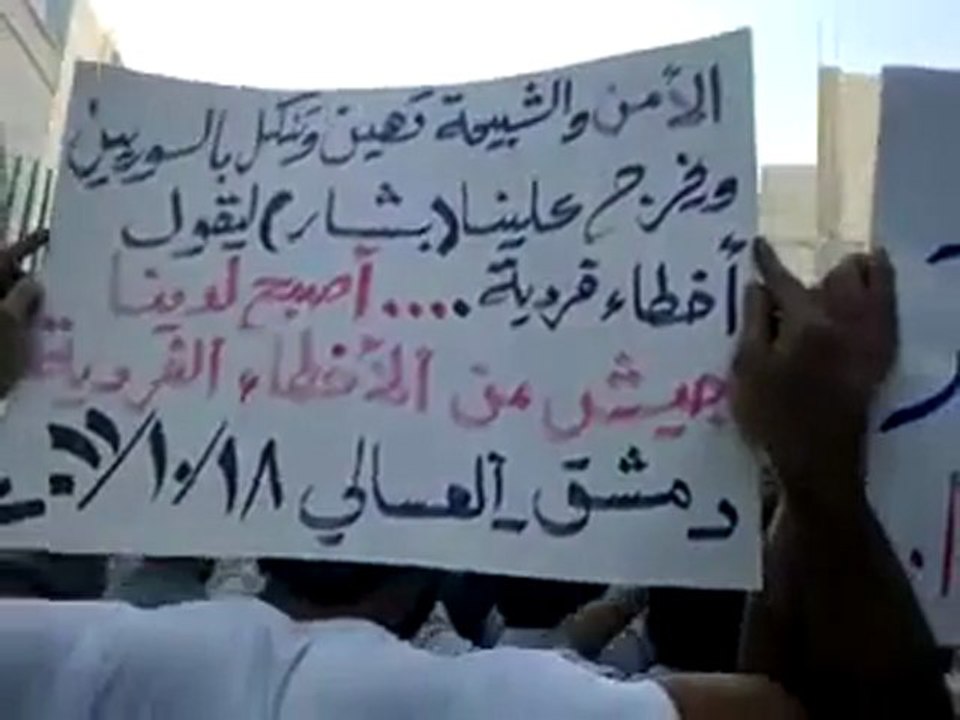 الأمن والشبيحة تهين وتنكل بالسوريين
ويخرج علينا (بشار) ليقول
أخطاء فردية .... أصبح لدينا
جيش من الأخطاء الفردية
دمشق_العسالي ١٨/١٠/